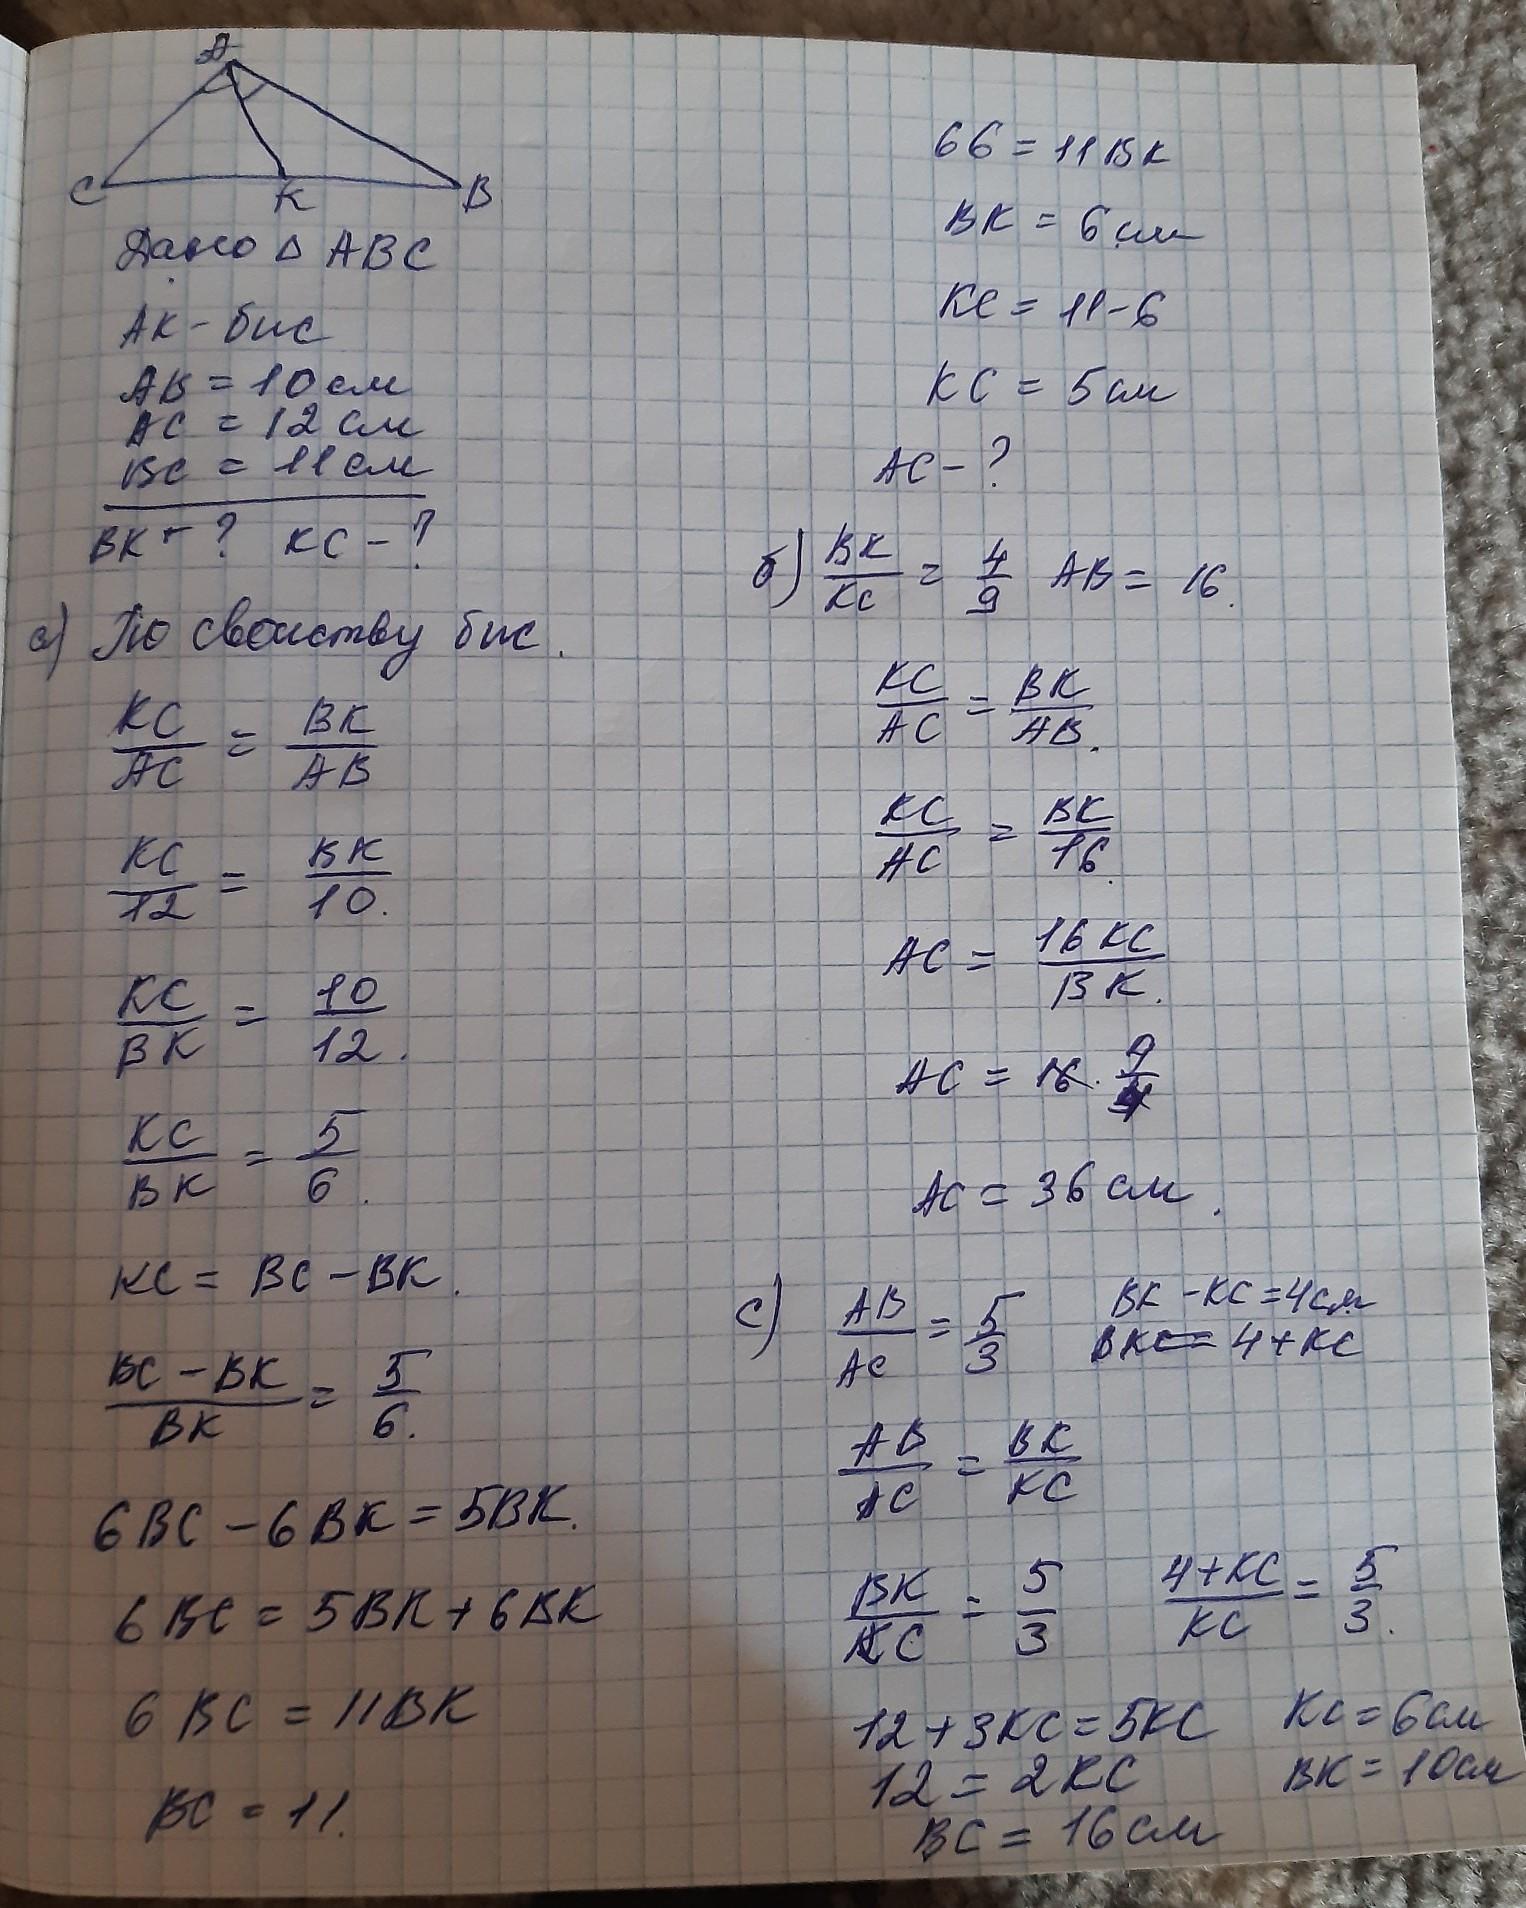 A
C K B
Дано △ ABC
AK - бис
AB = 10 см
AC = 12 см
BC = 11 см
BK - ? KC - ?
а) По свойству бис.
KC/AC = BK/AB
KC/12 = BK/10.
KC/BK = 10/12.
KC/BK = 5/6.
KC = BC - BK.
BC - BK/BK = 5/6.
6BC - 6BK = 5BK.
6BC = 5BK + 6BK
6BC = 11BK
BC = 11.
66 = 11BK
BK = 6 см
KC = 11 - 6
KC = 5 см
AC - ?
б) BK/KC = 4/9 AB = 16.
KC/AC = BK/AB.
KC/AC = BK/16.
AC = 16KC/BK.
AC = 16 · 9/4
AC = 36 см.
c) AB/AC = 5/3 BK - KC = 4 см
BK = 4 + KC
AB/AC = BK/KC
BK/KC = 5/3 4+KC/KC = 5/3.
12 + 3KC = 5KC KC = 6 см
12 = 2KC BK = 10 см
BC = 16 см